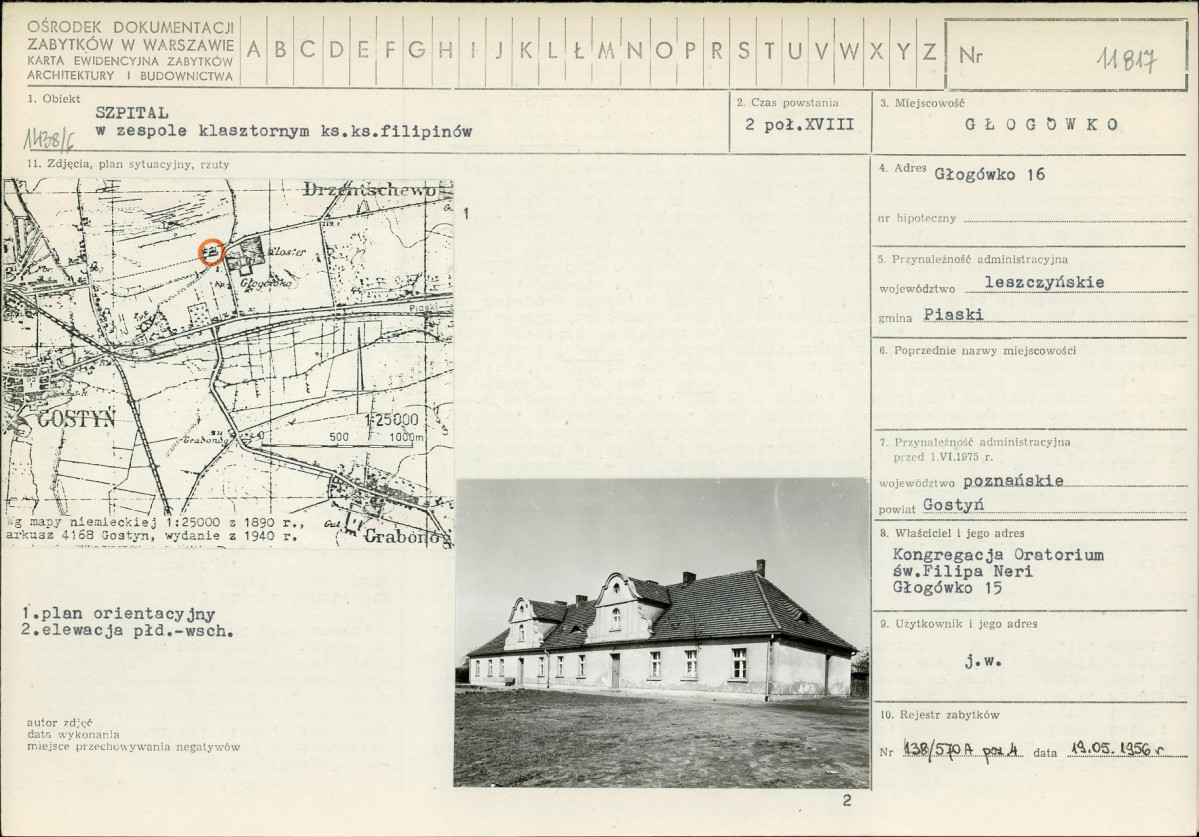 OŚRODEK DOKUMENTACJI
ZABYTKÓW W WARSZAWIE
KARTA EWIDENCYJNA ZABYTKÓW
ARCHITEKTURY I BUDOWNICTWA
A B C D E F G H I J K L Ł M N O P R S T U V W X Y Z
Nr 11817
1. Obiekt
SZPITAL
w zespole klasztornym ks.ks.filipinów
1438/6
2. Czas powstania
2 poł.XVIII
3. Miejscowość
GŁOGÓWKO
11. Zdjęcia, plan sytuacyjny, rzuty
Drzentschewo
1
Kloster
Głogówko
Piaski
GOSTYŃ
1:25000
0 500 1000m
zu
Grabonog
Gut
Grabonóg
Wg mapy niemieckiej 1:25000 z 1890 r.,
arkusz 4168 Gostyn, wydanie z 1940 r.
1.plan orientacyjny
2.elewacja płd.-wsch.
autor zdjęć
data wykonania
miejsce przechowywania negatywów
2
4. Adres Głogówko 16
nr hipoteczny
5. Przynależność administracyjna
województwo leszczyńskie
gmina Piaski
6. Poprzednie nazwy miejscowości
7. Przynależność administracyjna
przed 1.VI.1975 r.
województwo poznańskie
powiat Gostyń
8. Właściciel i jego adres
Kongregacja Oratorium
św.Filipa Neri
Głogówko 15
9. Użytkownik i jego adres
j.w.
10. Rejestr zabytków
Nr 138/570A poz.4 data 19.05.1956 r